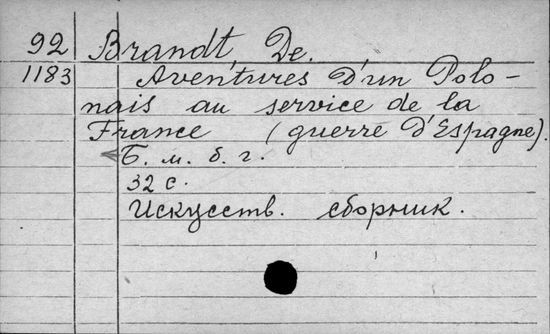 92 Brandt, De.
1183 Aventures d'un Polo-
nais au service de la
France (guerre d'Espagne).
Б. м. б. г.
32 с.
Искусств. сборник.